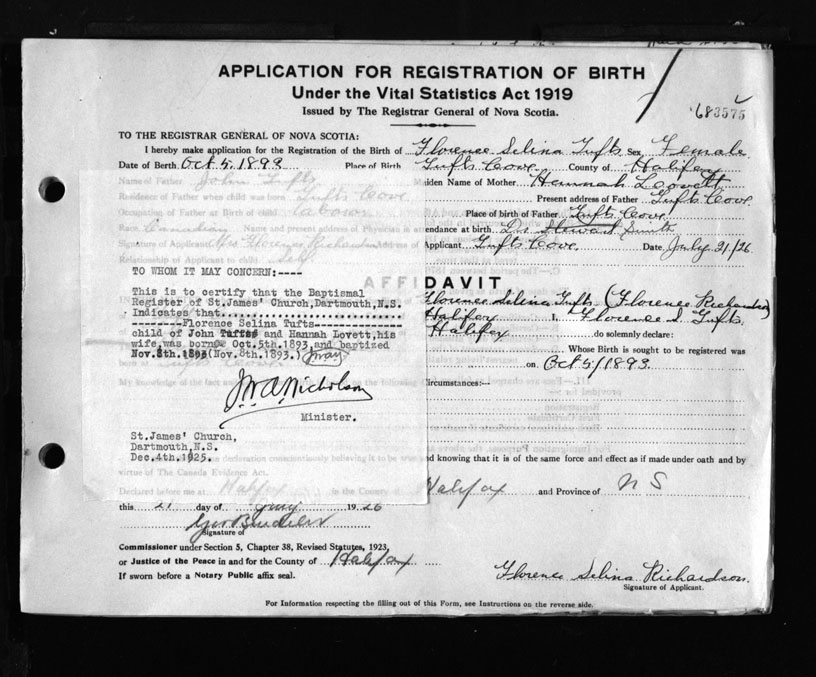 APPLICATION FOR REGISTRATION OF BIRTH
Under the Vital Statistics Act 1919
Issued by The Registrar General of Nova Scotia.
683575
TO THE REGISTRAR GENERAL OF NOVA SCOTIA:
I hereby make application for the Registration of the Birth of Florence Selina Tufts Sex Female
Date of Birth Oct 5, 1893 Place of Birth Tufts Cove County of Halifax
Name of Father John Tufts Maiden Name of Mother Hannah Lovett
Residence of Father when child was born Tufts Cove Present address of Father Tufts Cove
Occupation of Father at Birth of child Labour Place of birth of Father Tufts Cove
Race Canadian Name and present address of Physician in attendance at birth Dr Stewart Smith
Signature of Applicant Mrs Florence Richardson Address of Applicant Tufts Cove Date July 21/26
Relationship of Applicant to child Self
AFFIDAVIT
TO WHOM IT MAY CONCERN:----
This is to certify that the Baptismal
Register of St.James' Church,Dartmouth,N.S.
Indicates that
--------Florence Selina Tufts--------
child of John Tufts and Hannah Lovett,his
wife,was born Oct.5th.1893,and baptized
Nov.8th.1893(Nov.8th.1893.)
JWA Nicholson
Minister.
St.James' Church,
Dartmouth,N.S.
Dec.4th.1925.
Florence Selina Tufts (Florence Richardson)
Halifax I, Florence S. Tufts
Halifax do solemnly declare:
Whose Birth is sought to be registered was
on Oct 5/1893
circumstances:--
and knowing that it is of the same force and effect as if made under oath and by
virtue of The Canada Evidence Act.
Declared before me at Halifax in the County of Halifax and Province of N S
this 21 day of July 1926
Signature of
Commissioner under Section 5, Chapter 38, Revised Statutes, 1923,
or Justice of the Peace in and for the County of Halifax
If sworn before a Notary Public affix seal.
Florence Selina Richardson
Signature of Applicant.
For Information respecting the filling out of this Form, see Instructions on the reverse side.